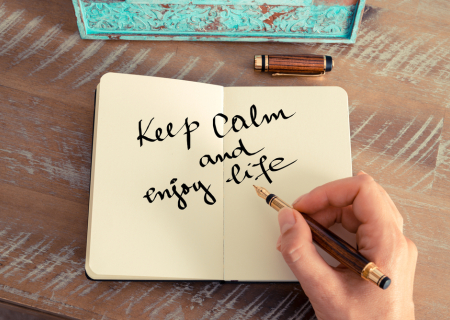 Keep Calm
and
enjoy life